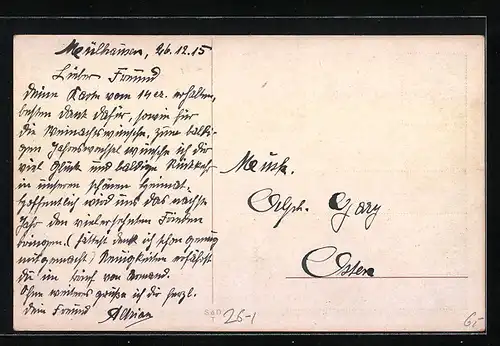 Mülhausen, 26.12.15
Lieber Freund
deine Karte vom 14 cr. erhalten,
besten Dank dafür, sowie für
die Weinachtswünsche, zum baldi-
gen Jahreswechsel wünsche ich dir
viel Glück und baldige Rückkehr
in unsere schöne Heimat.
Hoffentlich wird uns das nächste
Jahr den vielersehnten Frieden
bringen. ( denk ich schon genug
mitgemacht) Neuigkeiten erfährst
du im Brief von Armand.
Ohne weiteres grüße ich dir herzl.
dein Freund Adrian
Musk.
Alph. Gary
S&D
26-1
6,-